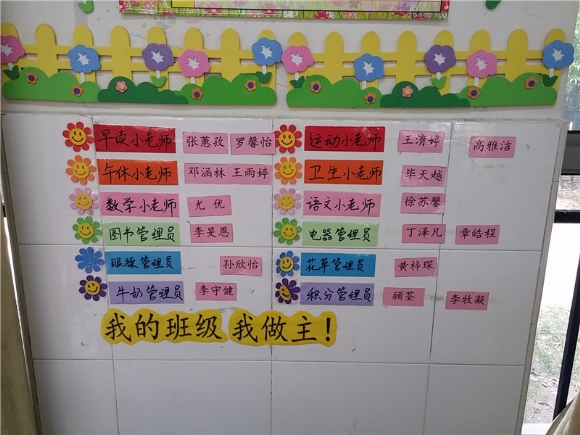 早读小老师 张蕙孜 罗馨怡 运动小老师 王淯婷 高雅洁
午休小老师 邓涵林 王雨婷 卫生小老师 毕天越
数学小老师 尤优 语文小老师 徐苏馨
图书管理员 李旻恩 电器管理员 丁泽凡 章皓程
眼操管理员 孙欣怡 花草管理员 黄梓琛
牛奶管理员 李守健 积分管理员 顾荃 李牧凝
我的班级我做主!